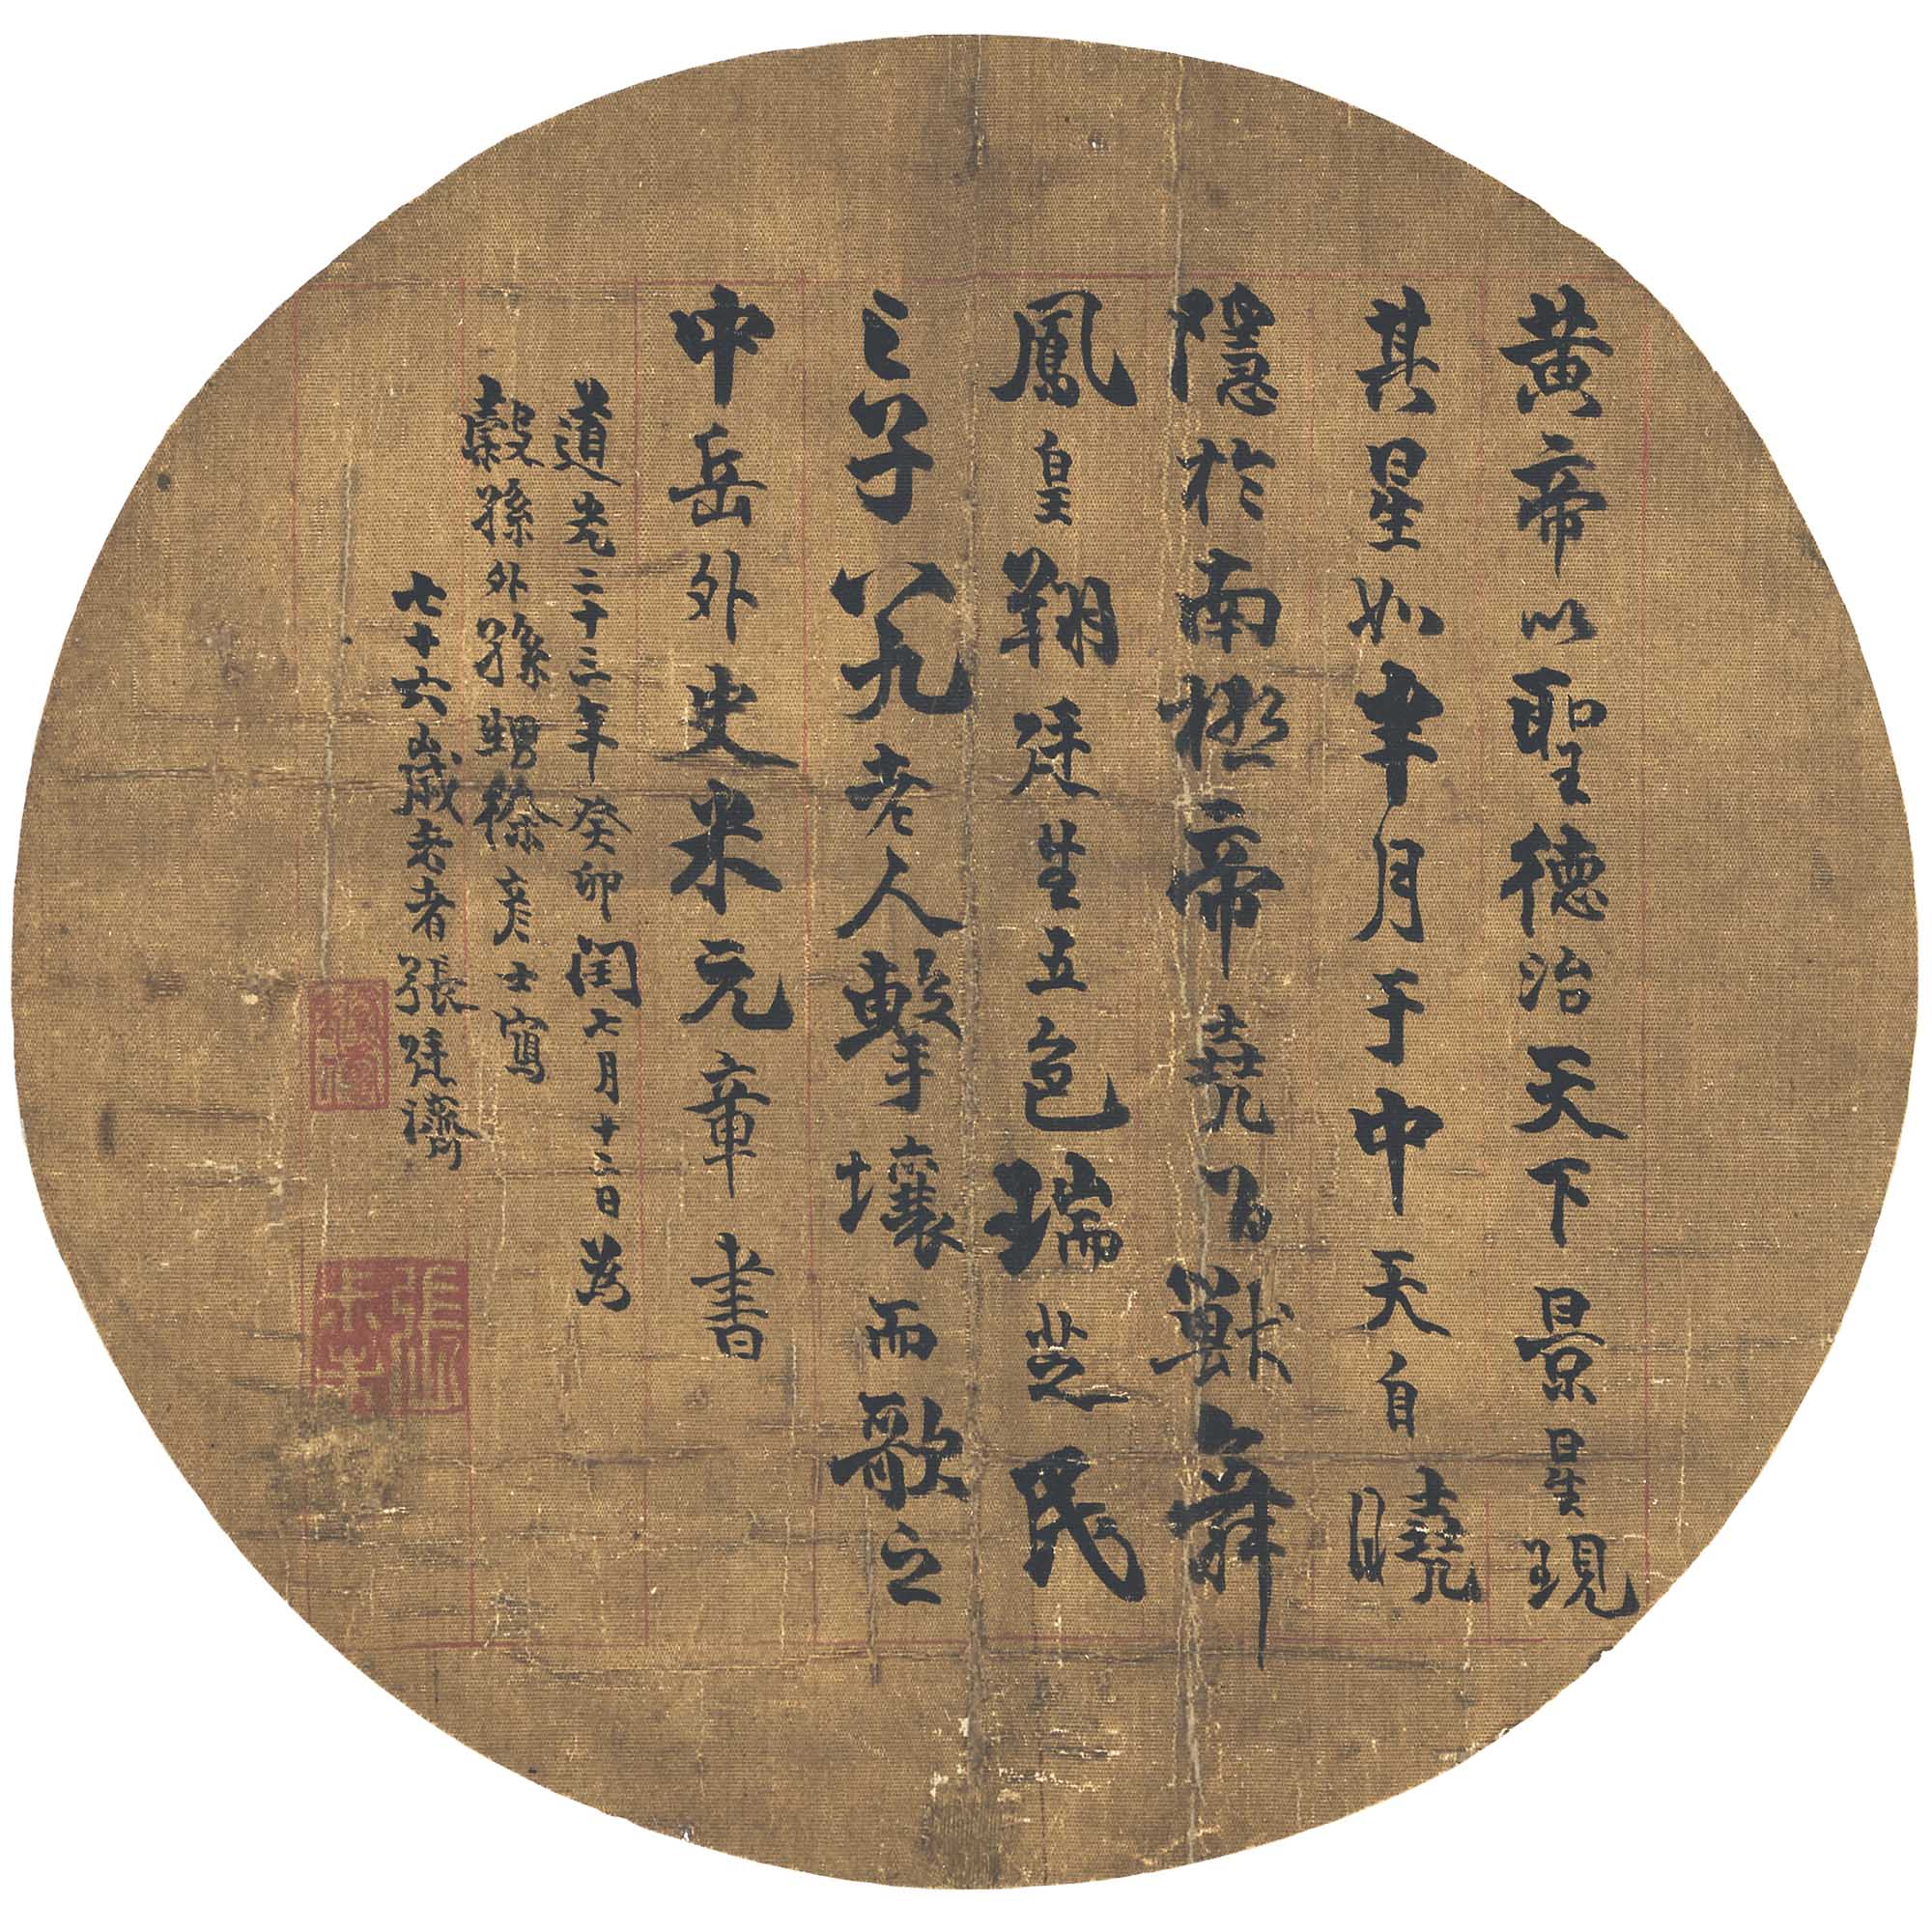 黃帝以聖德治天下景星現
其星如半月于中天自曉
隱於南極帝堯百獸舞
鳳皇翔廷生五色瑞芝民
之子八九老人擊壤而歌之
中岳外史米元章書
道光二十三年癸卯閏七月十二日為
穀孫外孫甥徐彥士寫
七十六歲老者張廷濟
張